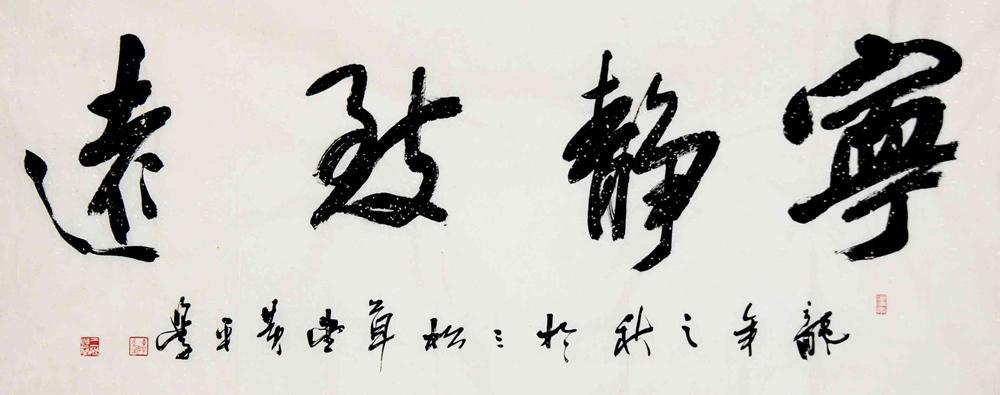 寧靜致遠
龍年之秋於三松草堂黃平